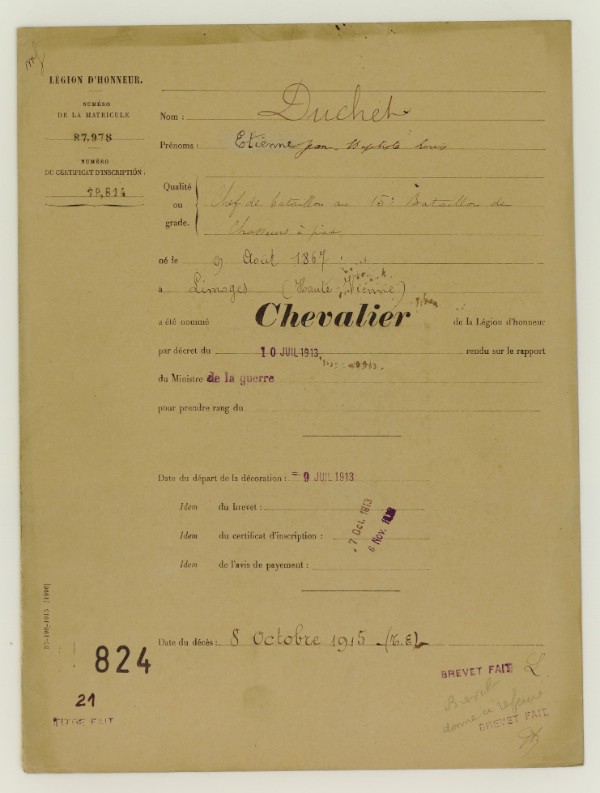 LÉGION D'HONNEUR.
NUMÉRO
DE LA MATRICULE
87,978
NUMÉRO
DU CERTIFICAT D'INSCRIPTION :
Nom : Duchet
Prénoms : Etienne Jean Baptiste Louis
Qualité
ou
grade.
Chef de bataillon au 15e Bataillon de
Chasseurs à pied
né le 9 Août 1867
à Limoges (Haute-Vienne)
a été nommé Chevalier de la Légion d'honneur
par décret du 10 JUIL 1913 rendu sur le rapport
du Ministre de la guerre
pour prendre rang du
Date du départ de la décoration : = 9 JUIL 1913
Idem du brevet :
Idem du certificat d'inscription :
Idem de l'avis de payement :
7 Oct. 1913
6 Nov.
Date du décès : 8 Octobre 1915
824
21
TITRE FAIT
BREVET FAIT
Brevet
donné à refaire
BREVET FAIT